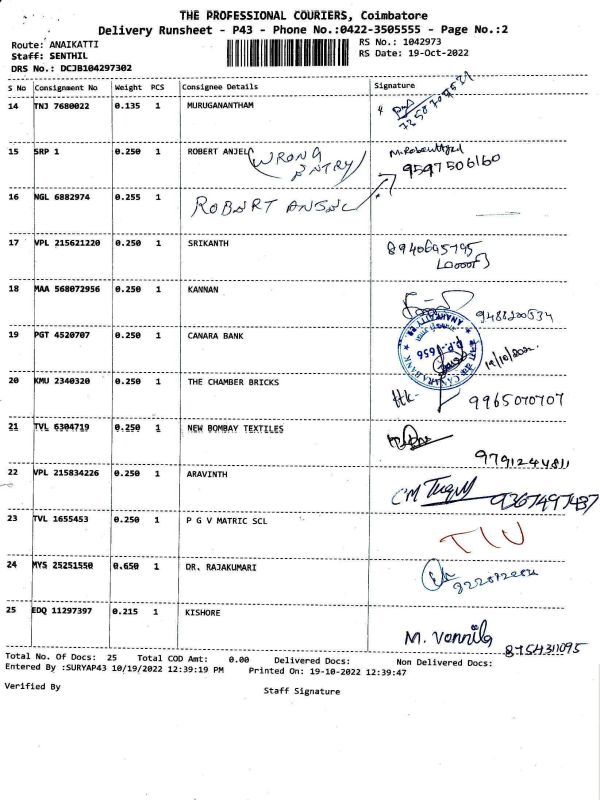 THE PROFESSIONAL COURIERS, Coimbatore
Delivery Runsheet - P43 - Phone No.:0422-3505555 - Page No.:2
Route: ANAIKATTI
RS No.: 1042973
Staff: SENTHIL
RS Date: 19-Oct-2022
DRS No.: DCJB104297302
S No Consignment No Weight PCS Consignee Details Signature
14 TNJ 7680022 0.135 1 MURUGANANTHAM
15 SRP 1 0.250 1 ROBERT ANJEL WRONG ENTRY 9597506160
16 NGL 6882974 0.255 1 ROBERT ANSEL
17 VPL 215621220 0.250 1 SRIKANTH 8940695795
18 MAA 568072956 0.250 1 KANNAN 9488200534
19 PGT 4520707 0.250 1 CANARA BANK 19/10/2022
20 KMU 2340320 0.250 1 THE CHAMBER BRICKS 9965070707
21 TVL 6304719 0.250 1 NEW BOMBAY TEXTILES 9791244811
22 VPL 215834226 0.250 1 ARAVINTH 9367497437
23 TVL 1655453 0.250 1 P G V MATRIC SCL
24 MYS 25251550 0.650 1 DR. RAJAKUMARI
25 EDQ 11297397 0.215 1 KISHORE M. Vennila 8754311095
Total No. Of Docs: 25 Total COD Amt: 0.00 Delivered Docs: Non Delivered Docs:
Entered By :SURYAP43 10/19/2022 12:39:19 PM Printed On: 19-10-2022 12:39:47
Verified By
Staff Signature